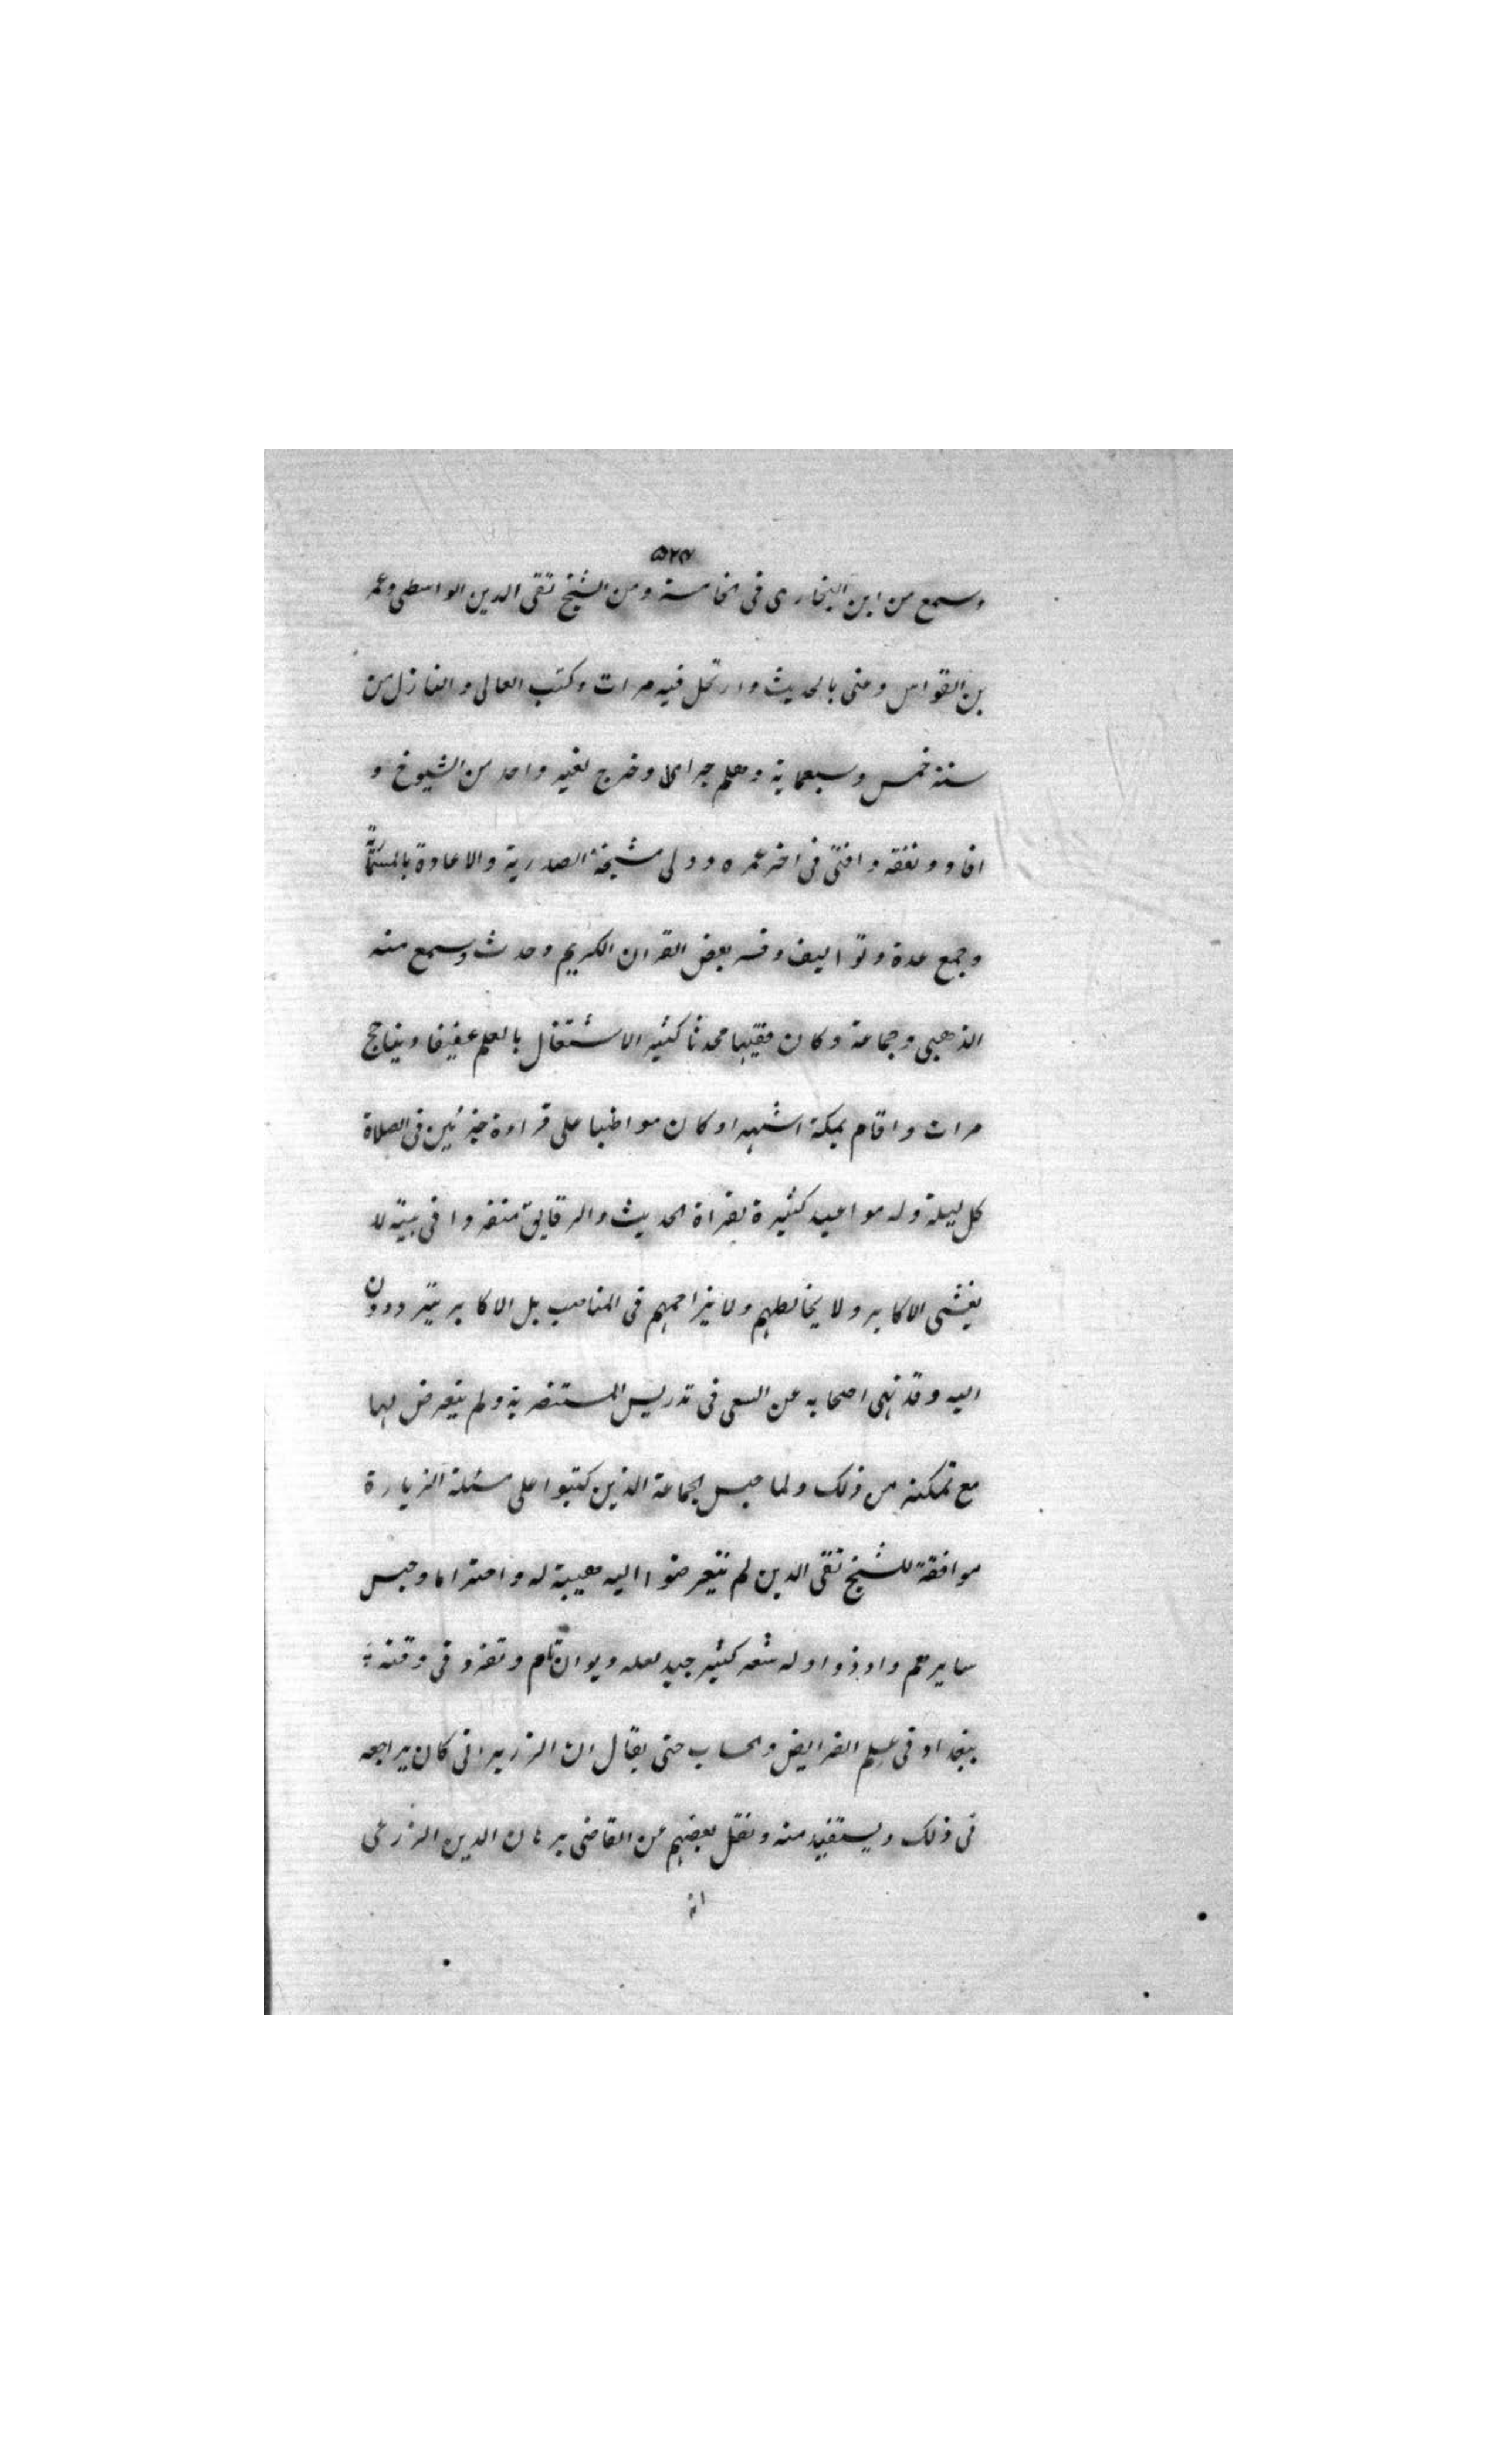 ٥٢٧
وسمع من ابن البخارى فى الخامسة ومن الشيخ تقى الدين الواسطى وعمر
بن القواس وعنى بالحديث وارتحل فيه مرات وكتب العالى والنازل من
سنة خمس وسبعماية وهلم جرا وخرج لغير واحد من الشيوخ و
افاد وتفقه وافتى فى اخر عمره وولى مشيخة الصدرية والاعادة بالمسمارية
وجمع عدة وتواليف وفسر بعض القران الكريم وحدث وسمع منه
الذهبى وجماعة وكان فقيها محدثا كثير الاشتغال بالعلم عفيفا دينا حج
مرات واقام بمكة اشهرا وكان مواظبا على قراءة جزئين فى الصلاة
كل ليلة وله مواعيد كثيرة بقراة الحديث والرقايق منفردا فى بيته لا
يغشى الاكابر ولا يخالطهم ولا يزاحمهم فى المناصب بل الاكابر يترددون
اليه وقد نهى اصحابه عن السعى فى تدريس المستنصرية ولم يتعرض لها
مع تمكنه من ذلك ولما حبس الجماعة الذين كتبوا على مسئلة الزيارة
موافقة للشيخ تقى الدين لم يتعرضوا اليه هيبة له واحتراما وحبس
سايرهم واوذوا وله شعر كثير جيد لعله ديوان تام وتفرد فى وقته
ببغداد فى علم الفرايض والحساب حتى يقال ان الزريرانى كان يراجعه
فى ذلك ويستفيد منه ونقل بعضهم عن القاضى برهان الدين الزرعى
انه